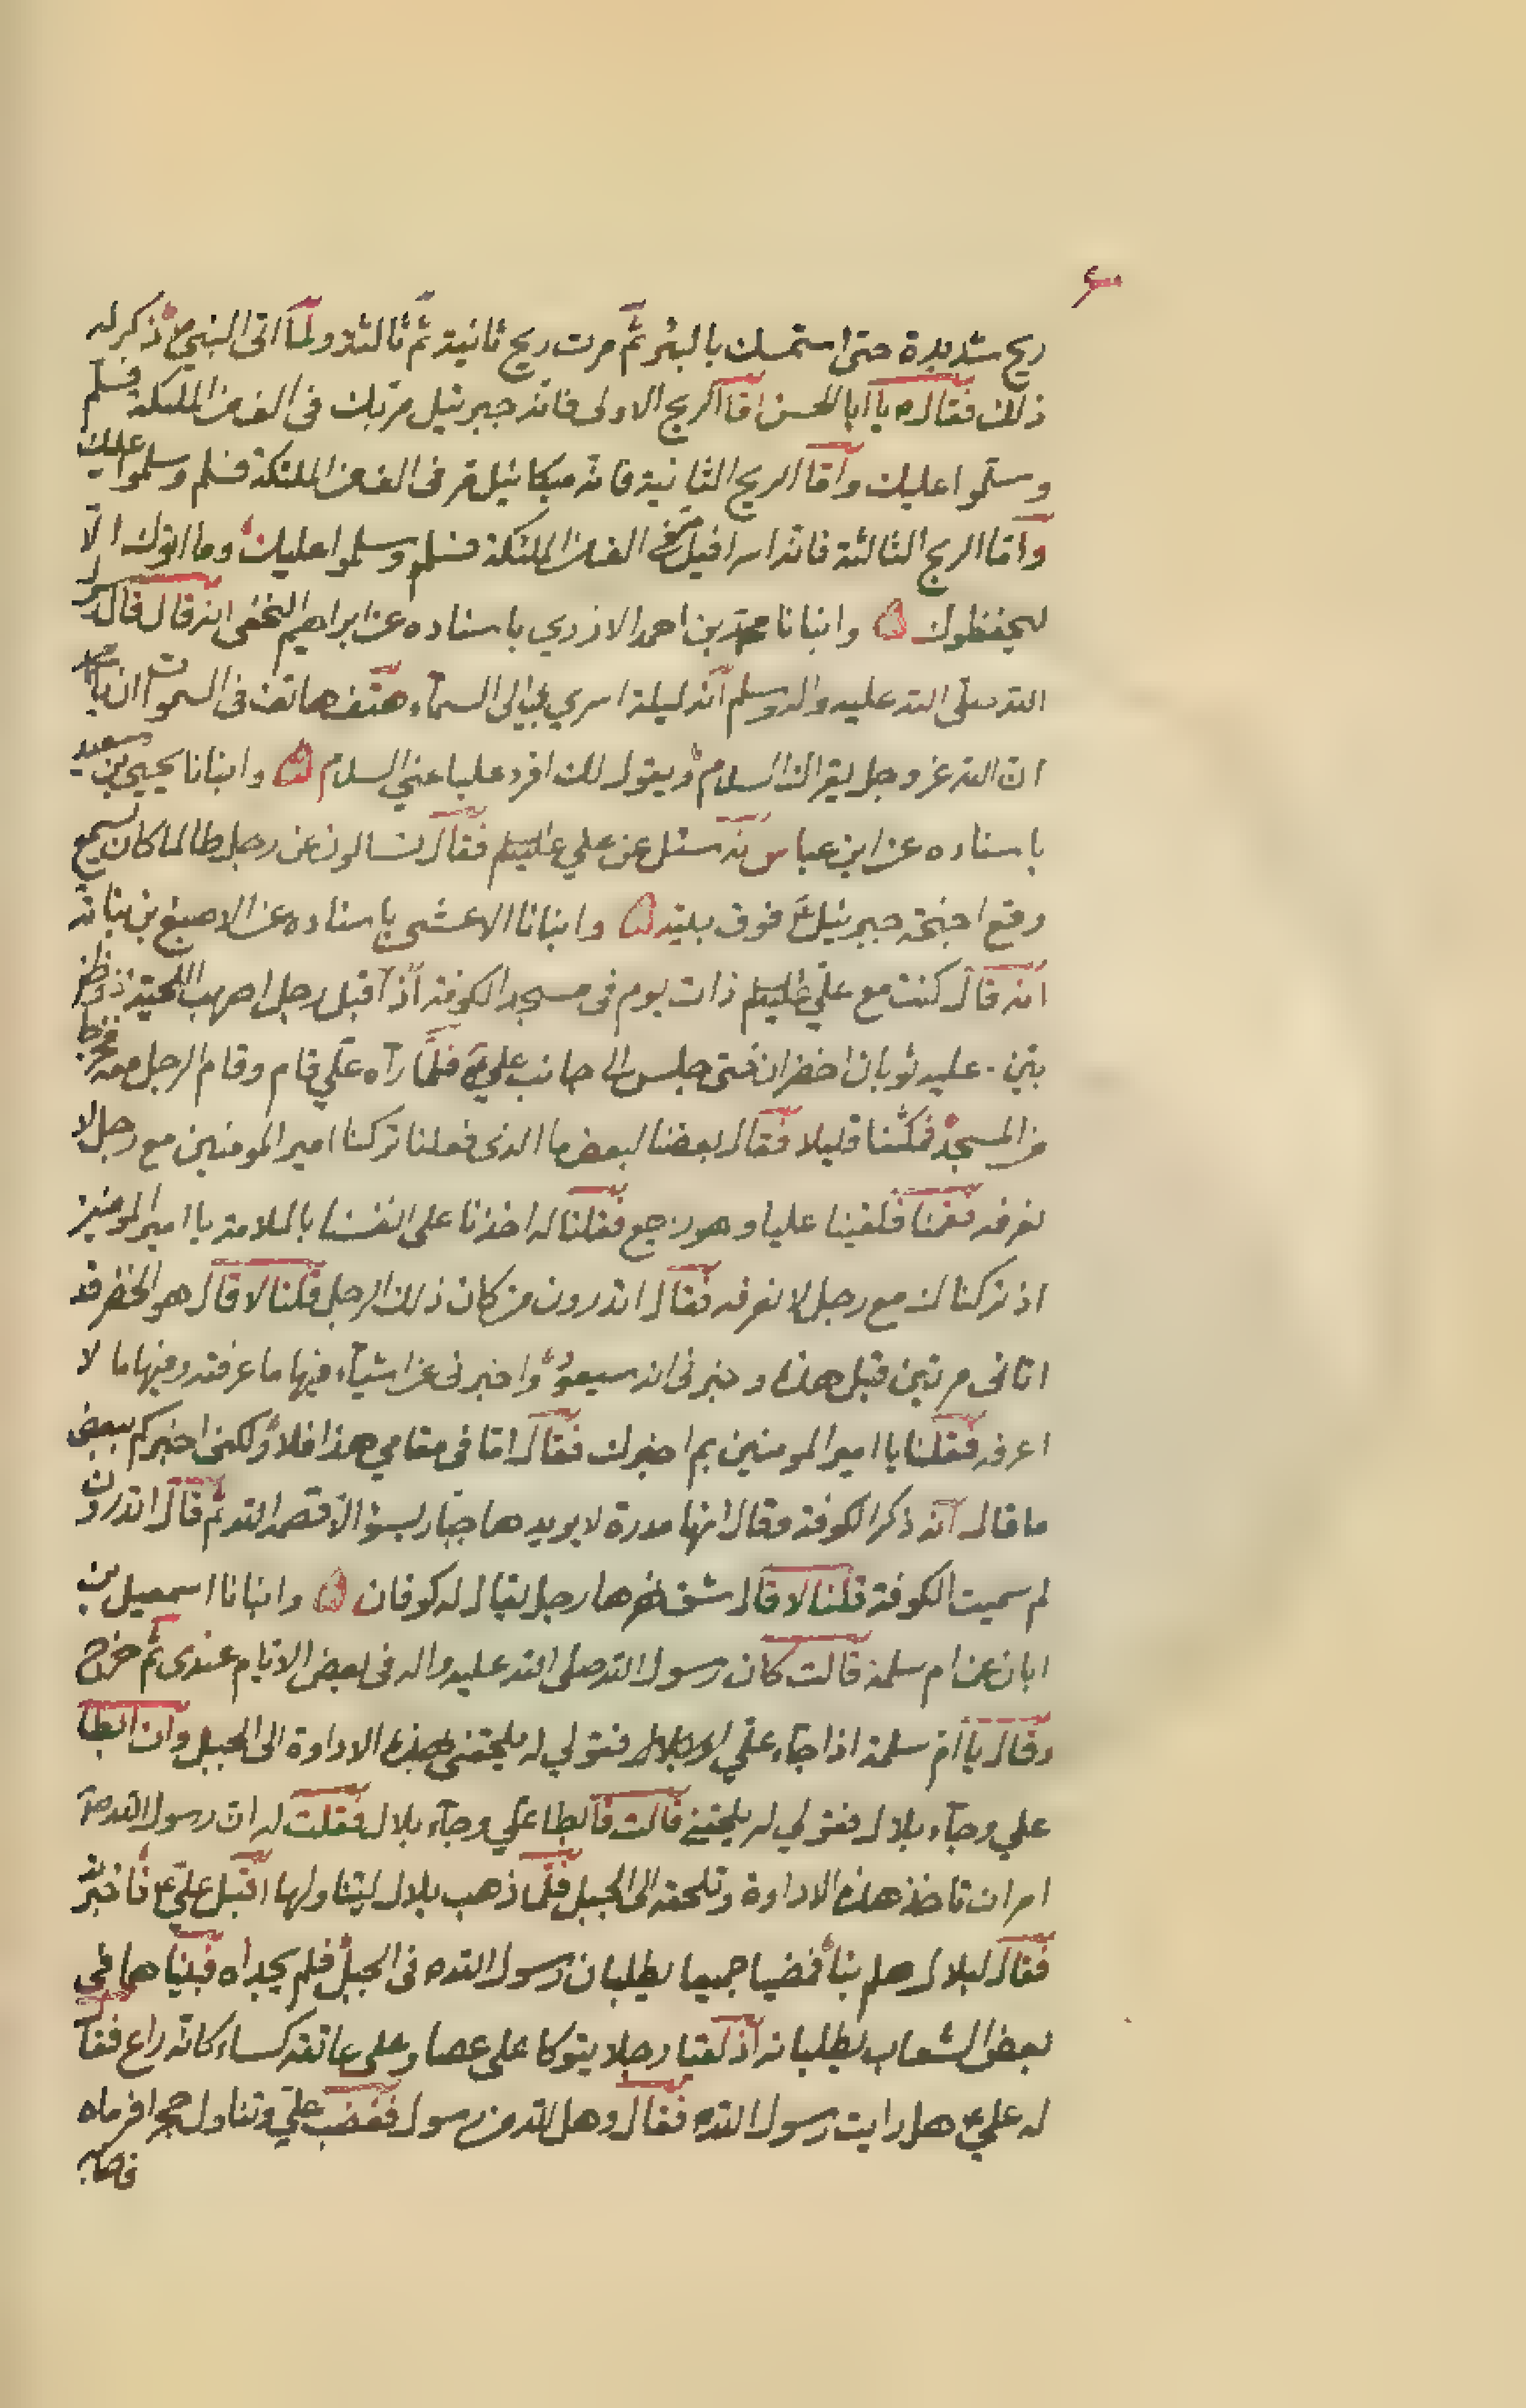 ريح شديدة حتى استمسك بالبئر ثم مرت ريح ثانية ثم ثالثة ولما اتى النبي ص ذكر له
ذلك فقال ص يا ابا الحسن اما الريح الاولى فانه جبرئيل مر بك فى الف من الملئكة فسلم
وسلموا عليك واما الريح الثانية فانه ميكائيل مر فى الف من الملئكة فسلم وسلموا عليك
واما الريح الثالثة فانه اسرافيل مر فى الف من الملئكة فسلم وسلموا عليك وما اتوك الا
ليحفظوك وانبانا محمد بن احمد الازدي باسناده عن ابراهيم النخعى انه قال قال رسول
الله صلى الله عليه واله وسلم انه ليلة اسري بي الى السماء هتف هاتف فى السموات ان يا محمد
ان الله عز وجل يقرا لك السلام ويقول لك اقرء عليا عني السلام وانبانا يحيى بن سعيد
باسناده عن ابن عباس انه سئل عن علي عليه السلم فقال تسالون عن رجل طالما كان يسمع
وقع اجنحة جبرئيل ع فوق بيته وانبانا الاعمش باسناده عن الاصبغ بن نباتة
انه قال كنت مع علي عليه السلم ذات يوم فى مسجد الكوفة اذ اقبل رجل اصهب اللحية ذو ظفر
بتين عليه ثوبان اخضران حتى جلس الى جانب علي ع فلما رآه علي قام وقام الرجل معه فخرجا
من المسجد فمكثنا قليلا فقال بعضنا لبعض ما الذى فعلنا تركنا امير المومنين مع رجل لا
نعرفه فقمنا فلقينا عليا وهو راجع فقلنا له اخذنا على انفسنا بالملامة يا امير المومنين
اذ تركناك مع رجل لا نعرفه فقال اتدرون من كان ذلك الرجل قلنا لا قال هو الخضر قد
اتانى مرتين قبل هذه وخبرنى انه سيعود واخبرنى عن اشياء فيها ما عرفته وفيها ما لا
اعرفه فقلنا يا امير المومنين بم اخبرك فقال اما فى مقامي هذا فلا ولكنى اخبركم ببعض
ما قال انه ذكر الكوفة وقال انها مدرة لا يريدها جبار بسوء الا قصمه الله ثم قال اتدرون
لم سميت الكوفة قلنا لا قال شق نهرها رجل يقال له كوفان وانبانا اسمعيل بن
ابان عن ام سلمة قالت كان رسول الله صلى الله عليه واله فى بعض الايام عندى ثم خرج
وقال يا ام سلمة اذا جاء علي او بلال فقولي له يلحقنى بهذه الاداوة الى الجبل وان ابطا
علي وجاء بلال فقولي له يلحقنى قالت فابطا علي وجاء بلال فقلت له ان رسول الله ص
امر ان تاخذ هذه الاداوة وتلحقه الى الجبل فلما ذهب بلال ليتناولها اقبل علي ع فاخبرته
فقال لبلال هلم بنا فمضيا جميعا يطلبان رسول الله ص فى الجبل فلم يجداه فبينا هما في
بعض الشعاب يطلبانه اذ لقيا رجلا يتوكا على عصا وعلى عاتقه كساء كانه راع فقال
له علي ع هل رايت رسول الله ص فقال وهل لله من رسول فغضب علي وتناول حجرا فرماه
فاصاب